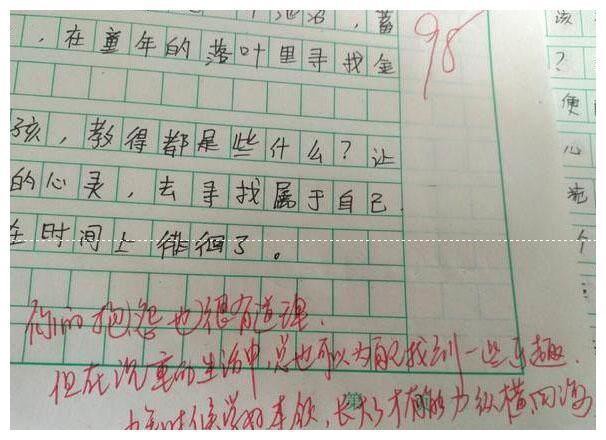 ，蓄
，在童年的落叶里寻找金
98
孩，教得都是些什么？让
的心灵，去寻找属于自己
在时间上徘徊了。
该
？
便
心
个
你的抱怨也很有道理.
但在沉重的生活中,总也可以为自己找到一些乐趣.
时候学好本领,长大了才有能力纵横四海